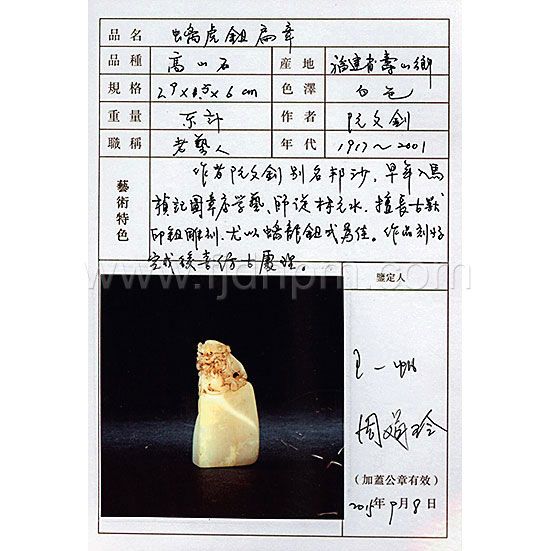 品名 螭虎鈕扁章
品種 高山石 產地 福建省壽山鄉
規格 2.9×1.5×6cm 色澤 白色
重量 未計 作者 阮文釗
職稱 老藝人 年代 1917~2001
藝術特色
作者阮文釗別名邦沙，早年入馬
禎記圖章店学藝，師從林元水，擅長古獸
印鈕雕刻，尤以螭龍鈕式為佳。作品刻好
完成後喜仿古處理。
www.fjdhpm.com
鑒定人
王一帆
周
玲
（加蓋公章有效）
2015年9月8日